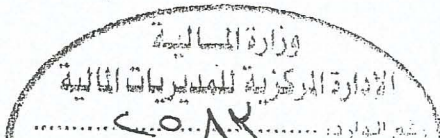 وزارة المالية
الإدارة المركزية للمديريات المالية
رقم الوارد: ٢٥٨٣